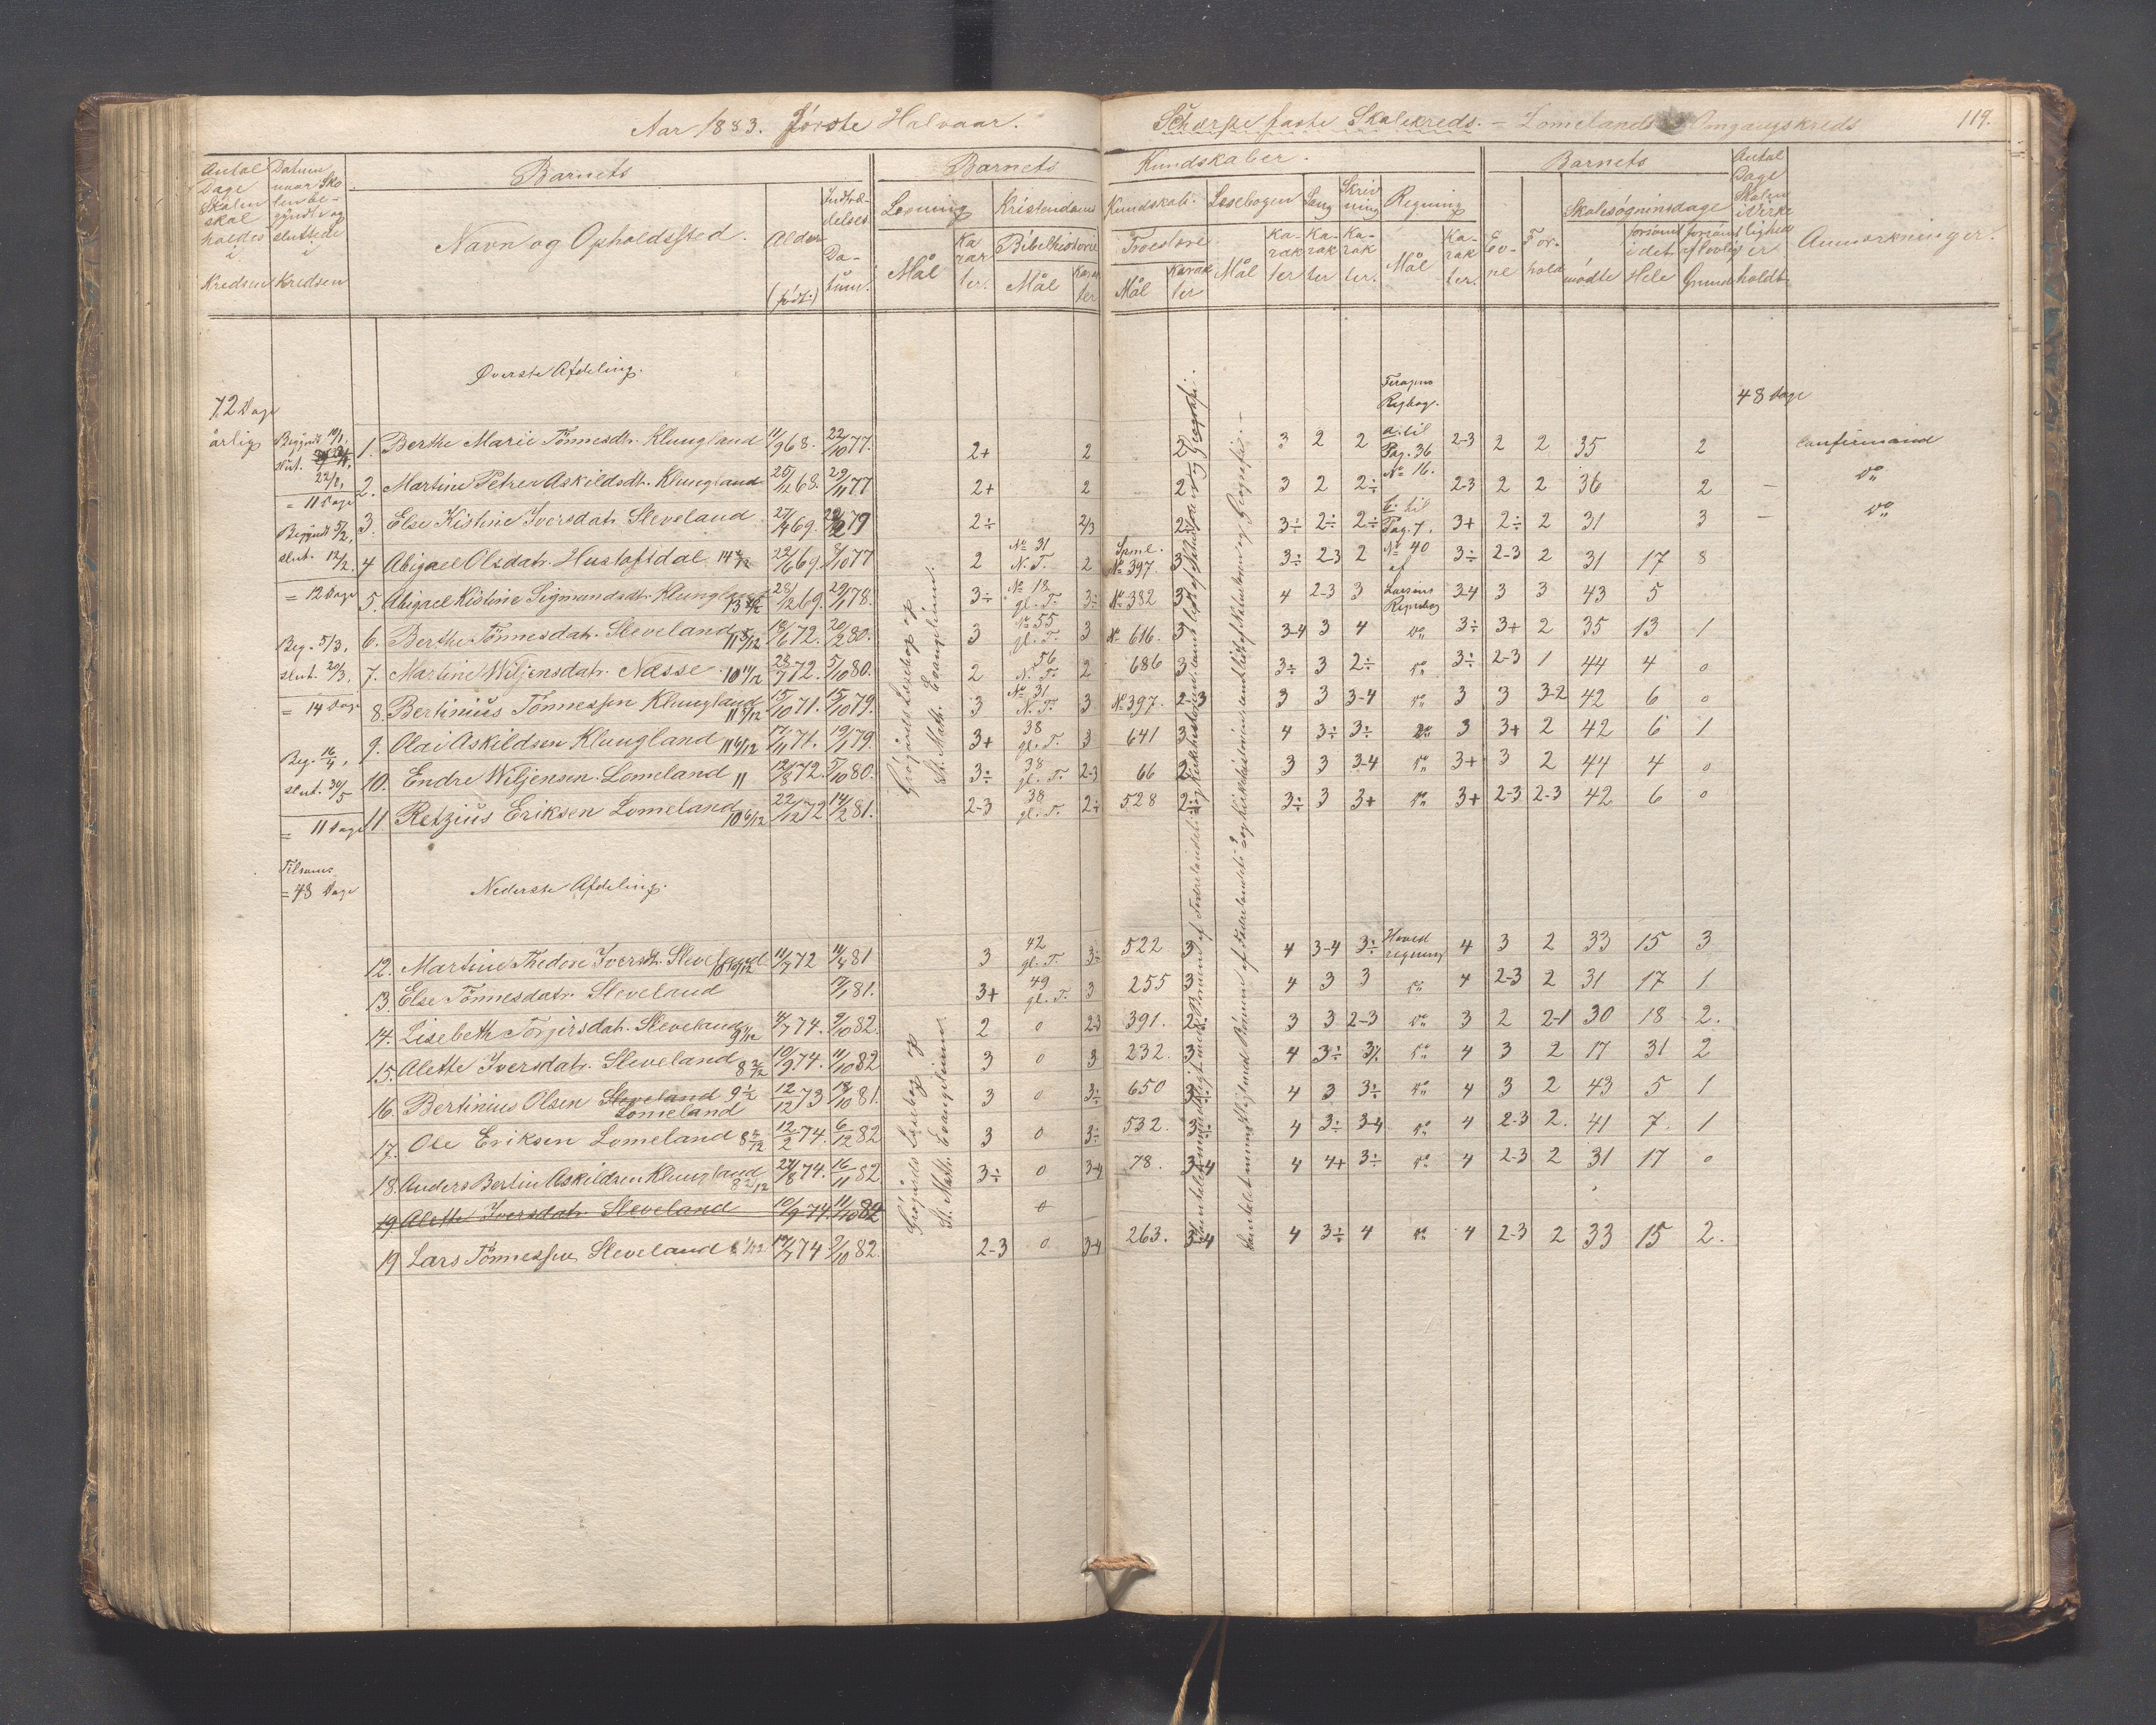 Aar 1883. Første Halvaar.
Skarpe faste Skolekreds. - Lomelands Omgangskreds
119.
Antal Dage Skolen skal holdes i Kredsen
Datum naar Skolen begyndte og sluttede i Kredsen
Barnets
Navn og Opholdssted.
Alder (født:)
Indtrædelses Datum.
Barnets
Kundskaber.
Læsning
Mål
Karakter.
Kristendoms
Kundskab.
Bibelhistorie
Mål
Karakter
Troeslære
Mål
Karakter
Læsebogen
Mål
Karakter
Sang
Karakter
Skrivning
Karakter.
Regning
Mål
Karakter.
Barnets
Evne
Forhold
Skolesøgningsdage
mødte
forsømt i det Hele
forsømt af lovlig Grund
Antal Dage Skolen i Virkelighed er holdt
Anmærkninger.
Øverste Afdeling.
72 Dage
årlig
48 Dage
1. Berthe Marie Tönnesdtr. Klungland 11/9 68. 22/10 77. 2+ 2 2 3 2 2 2-3 2 2 35 2 Confirmand
2. Martine Petrea Askildsdtr. Klungland 25/12 68. 29/11 77 2+ 2 2 3 2 2÷ 2-3 2 2 36 2 - do
3. Else Kistine Iversdatr. Sleveland 27/4 69. 79 2÷ 2/3 2÷ 3÷ 2÷ 2÷ 3+ 2÷ 2 31 3 - do
4 Abigael Olsdatr. Hustoftdal 22/6 69. 8/10 77 2 No 31 N. T. 2 No 397. 3 3÷ 2-3 2 3÷ 2-3 2 31 17 8
5. Abigael Kistine Sigmundsdtr. Klungland 28/12 69. 29/11 78. 3÷ No 18 gl. T. 3÷ No 382 3 4 2-3 3 3-4 3 3 43 5
6. Berthe Tönnesdatr. Sleveland 11 5/12 18/1 72. 20/2 80. 3 No 55 gl. T. 3 No 616. 3 3-4 3 4 do 3÷ 3+ 2 35 13 1
7. Martine Wiljensdatr. Nesse 10 11/12 23/7 72. 5/10 80. 2 56 N. T. 2 686 3 3÷ 3 2÷ do 3÷ 2-3 1 44 4 0
8. Bertinius Tönnessen Klungland 15/10 71. 15/10 79. 3 No 31 N. T. 3 No 397. 2-3 3 3 3-4 do 3 3 3-2 42 6 0
9. Olai Askildsen Klungland 11 6/12 17/11 71. 19/1 79. 3+ 38 gl. T. 3 641 3 4 3÷ 3÷ do 3 3+ 2 42 6 1
10. Endre Wiljensen Lomeland 11 12/8 72. 5/10 80. 3÷ 38 gl. T. 2-3 66 2÷ 3 3 3-4 do 3+ 3 2 44 4 0
11. Retzius Eriksen Lomeland 10 6/12 22/12 72 14/2 81. 2-3 38 gl. T. 2÷ 528 2÷ 3÷ 3 3+ do 3+ 2-3 2-3 42 6 0
Begyndt 10/1,
slut. 22/1,
= 11 Dage
Begyndt 5/2,
slut. 12/2.
= 12 Dage
Beg. 5/3,
slut. 20/3,
= 14 Dage
Beg. 16/4,
slut. 30/5
= 11 Dage
Tilsamm.
= 48 Dage
Regbog.
a. til Pag. 36 No 16.
b. til Pag. 7. No 40 af Larsens Regnebog
Grögårds Læsebog og St. Math. Evangelium.
Nederste Afdeling.
12. Martine Thedore Iversdtr. Sleveland 11/7 72 11/4 81 3 42 gl. T. 3÷ 522 3 4 3-4 3÷ Hovedregning 4 3 2 33 15 3
13. Else Tönnesdatr. Sleveland 81. 3+ 49 gl. T. 3 255 3 4 3 3 do 4 2-3 2 31 17 1
14. Lisebeth Torjersdatr. Sleveland 74. 9/10 82. 2 0 2-3 391. 2÷ 3 3 2-3 do 3 2 2-1 30 18 2.
15. Alette Iversdatr. Sleveland 8 9/12 10/9 74. 11/10 82 3 0 3 232. 3 4 3÷ 3÷ do 4 3 2 17 31 2
16. Bertinius Olsen Sleveland 9 1/2 Lomeland 12/12 73 18/10 81. 3 0 3÷ 650 3÷ 4 3 3÷ do 4 3 2 43 5 1
17. Ole Eriksen Lomeland 12/2 74. 6/12 82 3 0 3÷ 532. 3÷ 4 3÷ 3-4 do 4 2-3 2. 41 7. 1
18. Anders Bertin Askildsen Klungland 24/8 74. 16/11 82 3÷ 0 3-4 78. 3-4 4 4+ 3÷ do 4 2-3 2 31 17 0
19 Alette Iversdatr. Sleveland 10/9 74. 11/10 82 0
19 Lars Tönnessen Sleveland 74 9/10 82. 2-3 0 3-4 263. 3-4 4 3÷ 4 do 4 2-3 2 33 15 2.
Grögårds Læsebog og St. Math. Evangelium.